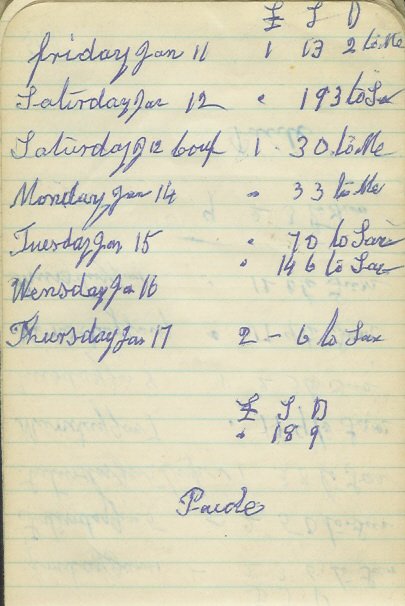 £ S D
friday Jan 11 1 13 2 to Me
Saturday Jan 12 " 19 3 to Sax
Saturday J 12 bout 1 " 3 0 to Me
Monday Jan 14 " 3 3 to Me
Tuesday Jan 15 " 7 0 to Sax
" 14 6 to Sax
Wensday Ja 16
Thursday Jan 17 2 – 6 to Sax
£ S D
" 18 9
Paide